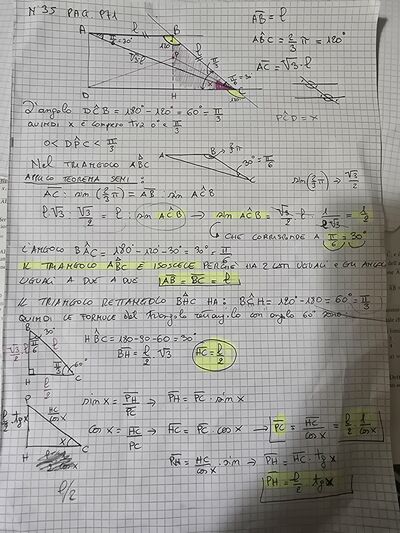 N°35 PAG. 971
A
B
P
C
D
H
120°
AB = ℓ
AB̂C = 2/3 π = 120°
AC = √3·ℓ
PĈD = x
L'angolo DĈB = 180°-120° = 60° = π/3
quindi x è compreso tra 0° e π/3
0 < DP̂C < π/3
Nel triangolo ABC
APPLICO TEOREMA SENI:
A B C 2/3 π 30° = π/6
sin(2/3 π) → √3/2
AC : sin(2/3 π) = AB : sin AĈB
ℓ√3 : √3/2 = ℓ : sin AĈB → sin AĈB = √3/2 · ℓ · 1/ℓ√3 = 1/2
CHE CORRISPONDE A π/6 = 30°
L'ANGOLO BÂC = 180°-120-30° = 30° = π/6
IL TRIANGOLO ABC È ISOSCELE PERCHÉ HA 2 LATI UGUALI E GLI ANGOLI
UGUALI A DUE A DUE AB = BC = ℓ
IL TRIANGOLO RETTANGOLO BĤC HA:
= 60° = π/3
QUINDI LE FORMULE del triangolo rettangolo con angolo 60° sono:
B 30° π/6 ℓ 60° H C ℓ/2
HB̂C = 180-90-60 = 30°
BH = ℓ/2 · √3
HC = ℓ/2
P H C x HC/cos x ℓ/2 · tg x
sin x = PH/PC → PH = PC · sin x
cos x = HC/PC → HC = PC · cos x → PC = HC/cos x = ℓ/2 · 1/cos x
PH = HC/cos x · sin → PH = HC · tg x
ℓ/2
PH = ℓ/2 · tg x